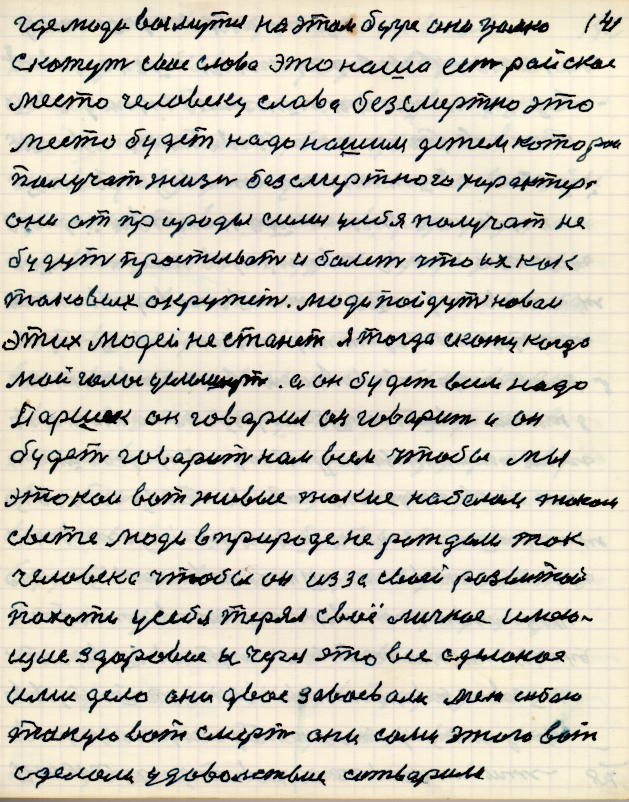 где люди возмутся на этом бугре они громко 141
скажут свое слова это наша есть райское
место человеку слава безсмертно это
место будет надо нашим детем которые
получат жизнь безсмертного характера
они от природы силы у себя получат не
будут простывать и болет что их как
таковых окружит. люди пойдут новые
этих людей не станет я тогда скажу когда
мой голос услышут. а он будет всем надо
Паршек он говарил он говарит и он
будет говарит нам всем чтобы мы
этокои вот живые такие на белом таком
свете люди в природе не рождали так
человека чтобы он из за своей развитой
похоти у себя терял своё личное имею-
щие здоровье и через это все сделоное
ими дело они двое завоевали меж собою
такую вот смерт они сами этого вот
сделали удоволствие сотварили